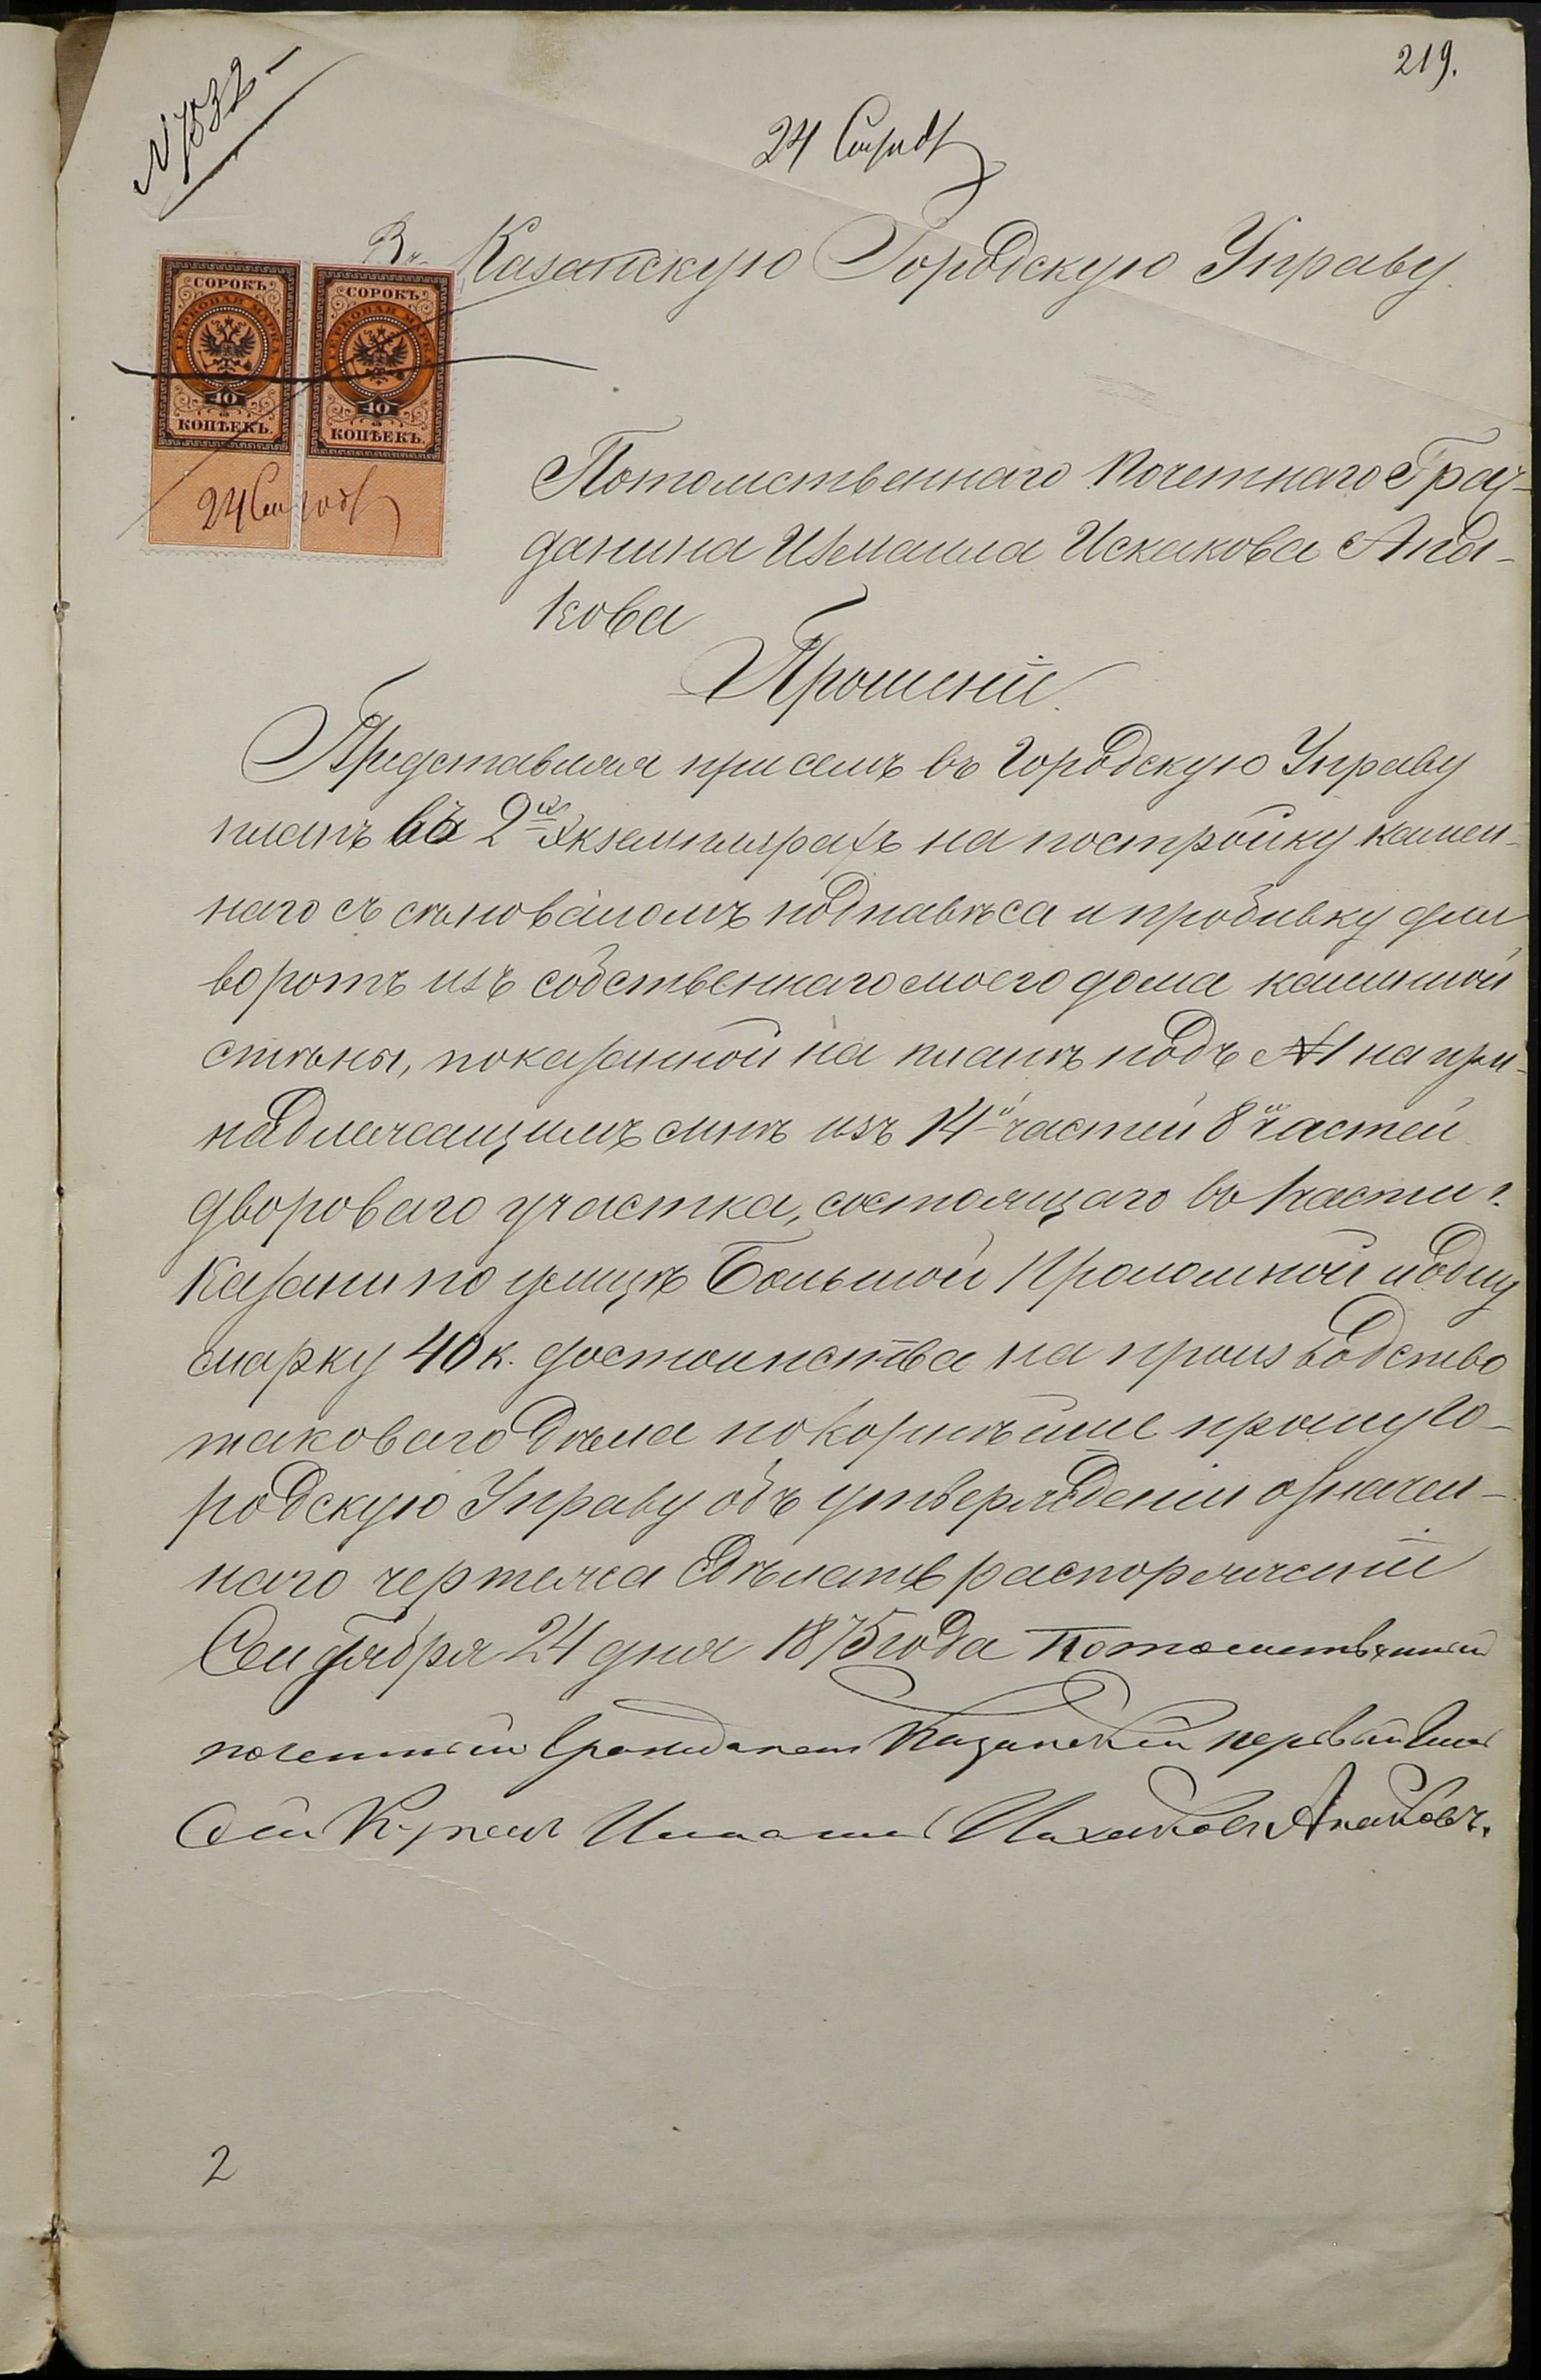 219.
N 7532
24 Сентяб
Въ Казанскую Городскую Управу.
СОРОКЪ СОРОКЪ
ГЕРБОВАЯ МАРКА ГЕРБОВАЯ МАРКА
40 40
КОПѢЕКЪ. КОПѢЕКЪ.
24 Сен
Потомственнаго Почетнаго Граж-
данина Измаила Искакова Апа-
кова
Прошеніе.
Представляя при семъ въ Городскую Управу
планъ въ 2хъ экземплярахъ на постройку камен-
наго съ сѣноваломъ поднавѣса и пробивку для
воротъ изъ собственнаго моего дома каменной
стѣны, показанной на планѣ подъ №1 на при-
надлежащимъ мнѣ изъ 14и частей 8и частей
двороваго участка, состоящаго во 1 части г.
Казани по улицѣ Большой Проломной и одну
марку 40 к. достоинства на производство
таковаго дѣла покорнѣйше прошу Го-
родскую Управу объ утвержденіи означен-
наго чертежа сдѣлать распоряженіе
Сентября 24 дня 1875 года Потомственный
почетный гражданин Казанской первый
Купец Измаил Исхаковъ Апаковъ.
2